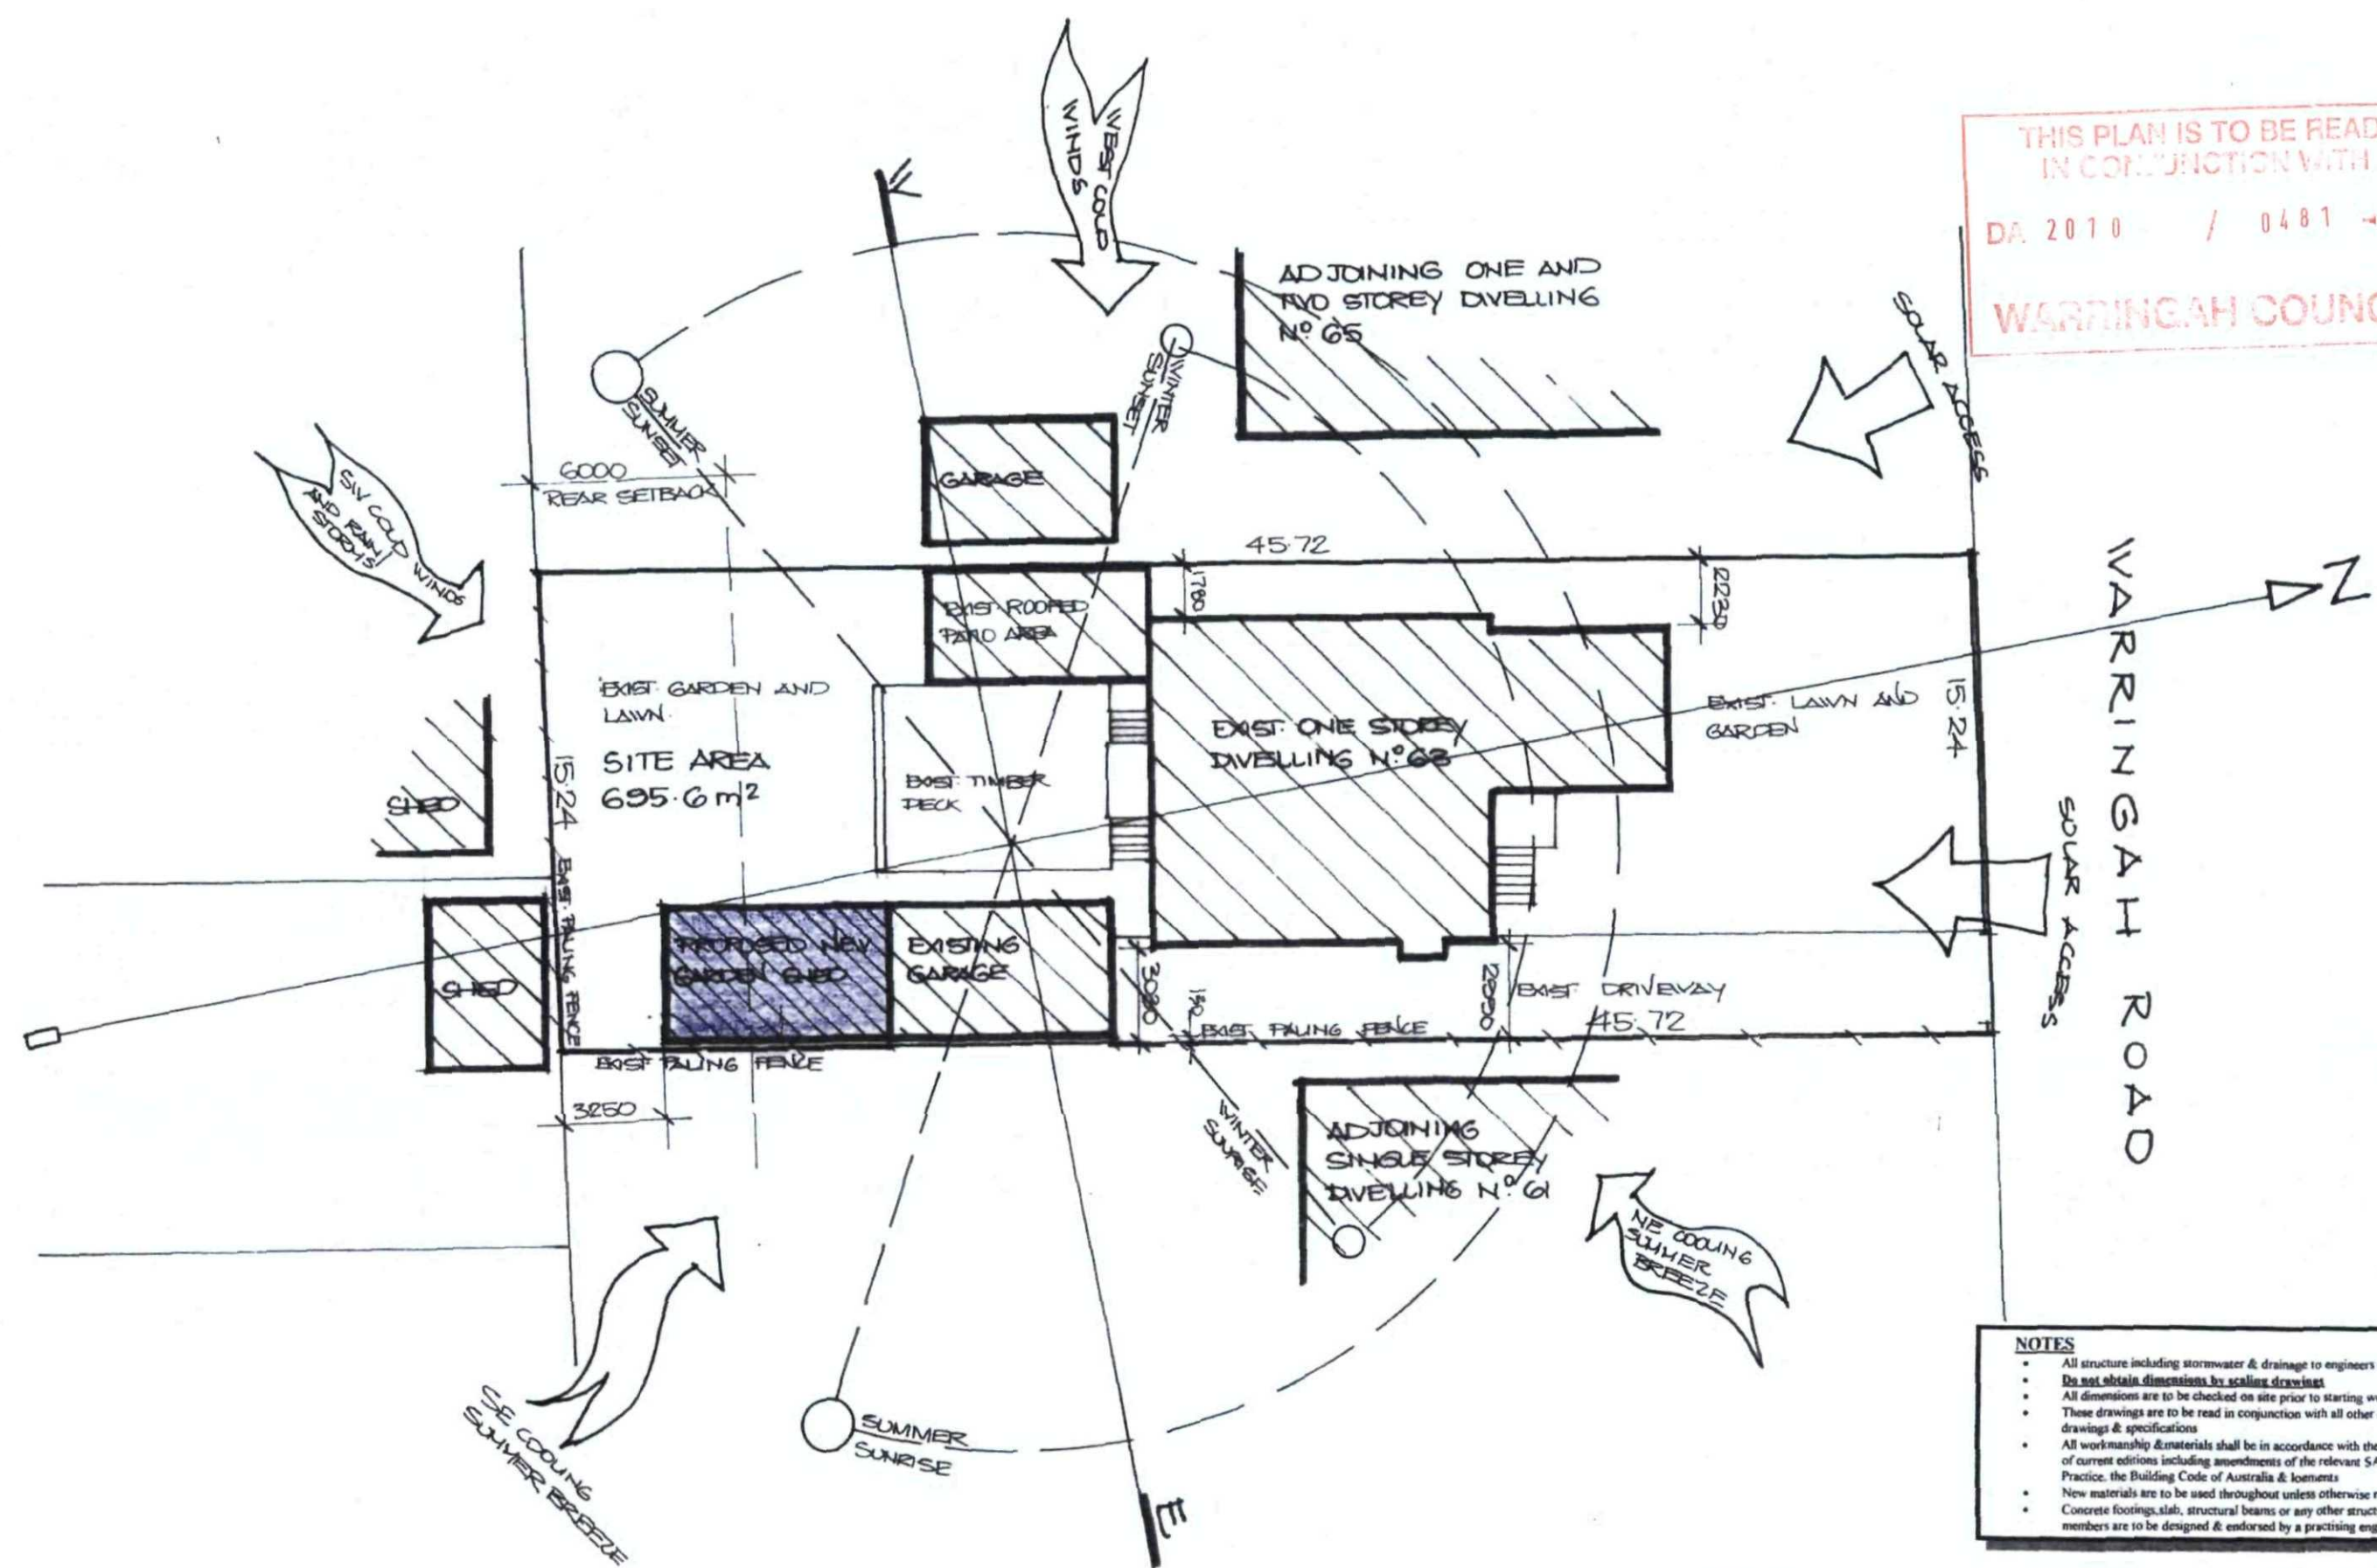 WEST COLD
WINDS
THIS PLAN IS TO BE READ
IN CONJUNCTION WITH
DA 2010 / 0481
WARRINGAH COUNC
W
ADJOINING ONE AND
TWO STOREY DWELLING
Nº 65
SOLAR ACCESS
SUMMER
SUNSET
WINTER
SUNSET
6000
REAR SETBACK
GARAGE
SW COLD WINDS
AND RAIN
STORMS
45.72
1780
2230
EXIST. ROOFED
PATIO AREA
N
WARRINGAH ROAD
EXIST. GARDEN AND
LAWN.
SITE AREA
695.6 m²
15.24
EXIST. PALING FENCE
SHED
EXIST. TIMBER
DECK
EXIST. ONE STOREY
DWELLING Nº 63
EXIST. LAWN AND
GARDEN
15.24
SOLAR ACCESS
SHED
PROPOSED NEW
GARDEN SHED
EXISTING
GARAGE
EXIST. DRIVEWAY
EXIST. PALING FENCE
45.72
EXIST. PALING FENCE
3250
WINTER
SUNRISE
ADJOINING
SINGLE STOREY
DWELLING Nº 61
NE COOLING
SUMMER
BREEZE
SE COOLING
SUMMER BREEZE
SUMMER
SUNRISE
E
NOTES
• All structure including stormwater & drainage to engineers
• Do not obtain dimensions by scaling drawings
• All dimensions are to be checked on site prior to starting w
• These drawings are to be read in conjunction with all other
drawings & specifications
• All workmanship &materials shall be in accordance with the
of current editions including amendments of the relevant SA
Practice, the Building Code of Australia & loements
• New materials are to be used throughout unless otherwise
• Concrete footings,slab, structural beams or any other struct
members are to be designed & endorsed by a practising eng